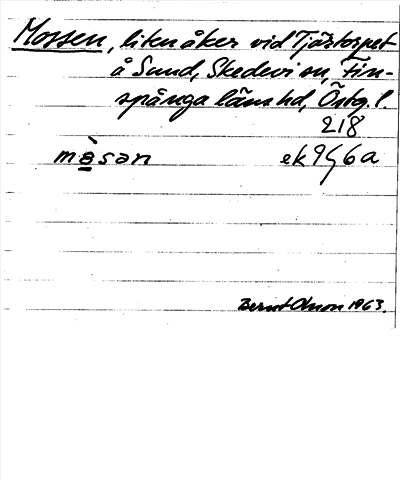 Mossen, liten åker vid Tjärtorpet
å Sund, Skedevi sn, Fin-
spånga läns hd, Östg. l.
218
mə̀san ek 9456a
Bernt Olsson 1963.